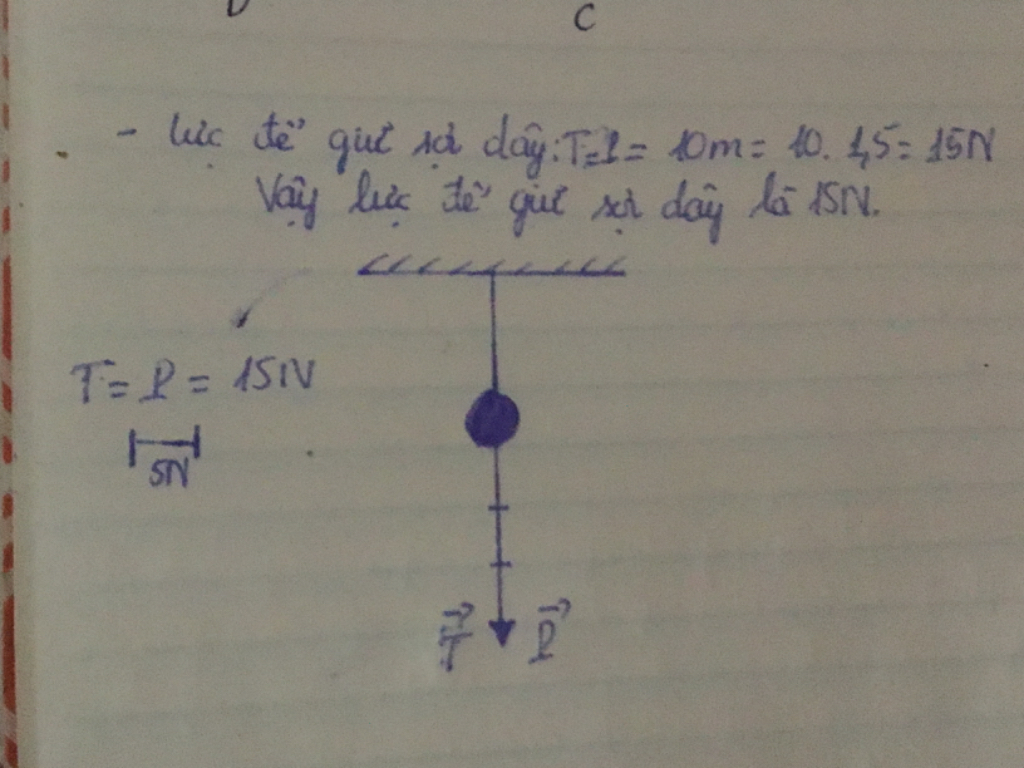 C
- lực để giữ sợi dây: T=P= 10m= 10. 1,5= 15N
Vậy lực để giữ sợi dây là 15N.
T= P= 15N
5N
T P